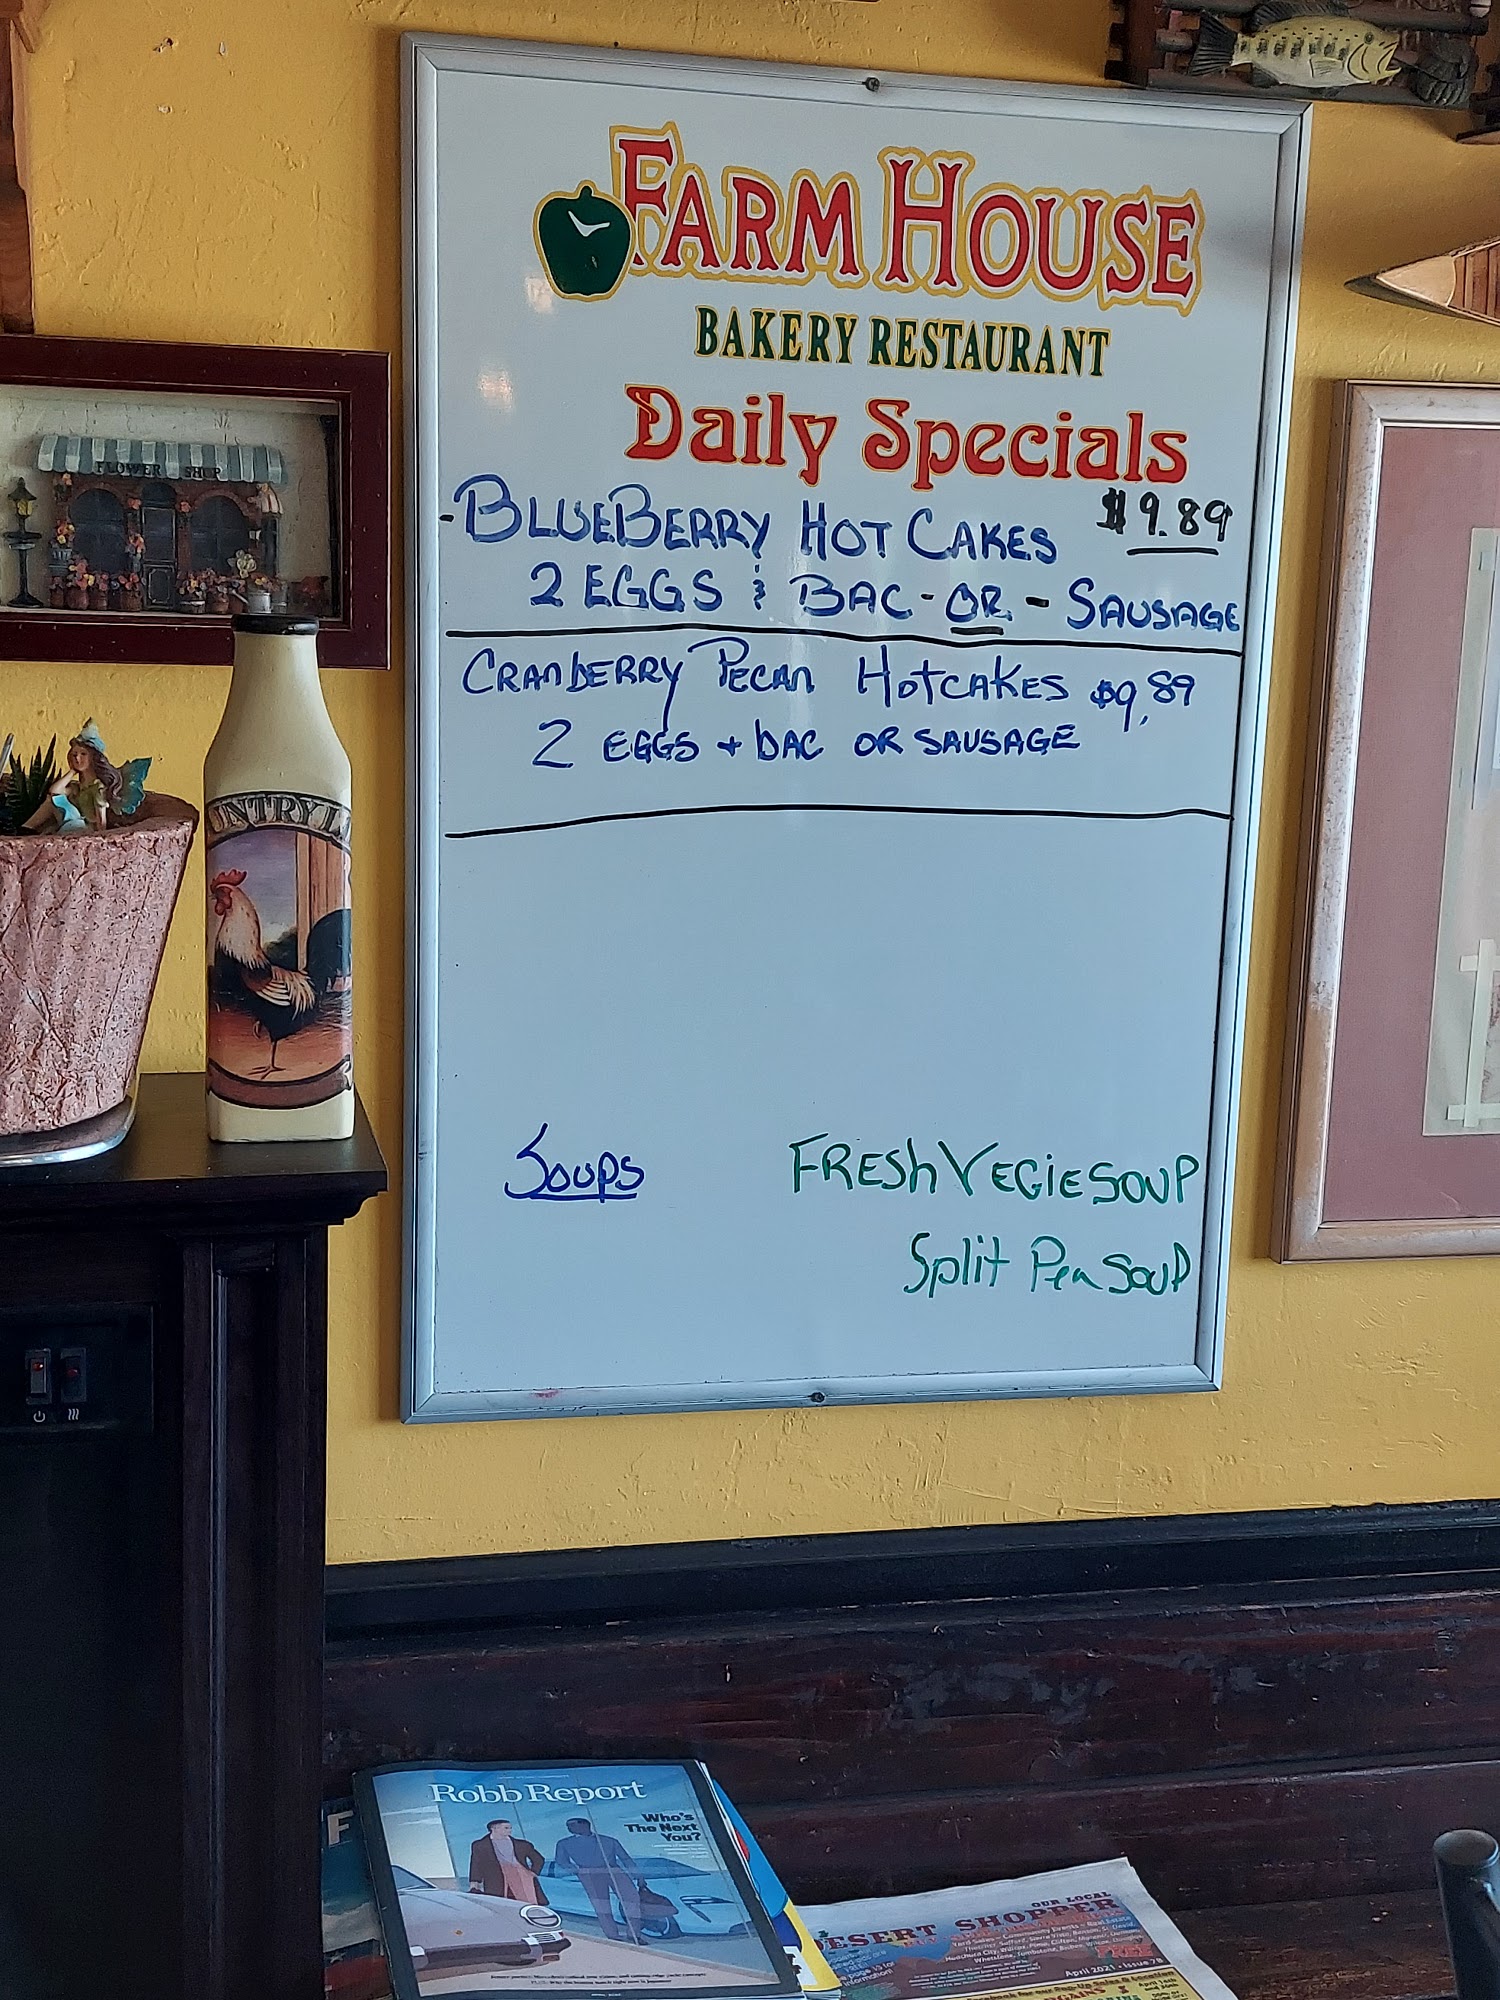 FARM HOUSE
BAKERY RESTAURANT
Daily Specials
-BLUEBERRY HOT CAKES $9.89
2 EGGS & BAC - OR - SAUSAGE
CRANBERRY PECAN HOTCAKES $9.89
2 EGGS + BAC OR SAUSAGE
Soups FRESH VEGIE SOUP
Split Pea Soup
FLOWER SHOP
UNTRY
Robb Report
Who's
The Next
You?
OUR LOCAL
DESERT SHOPPER
FREE
April 2021 - Issue 78